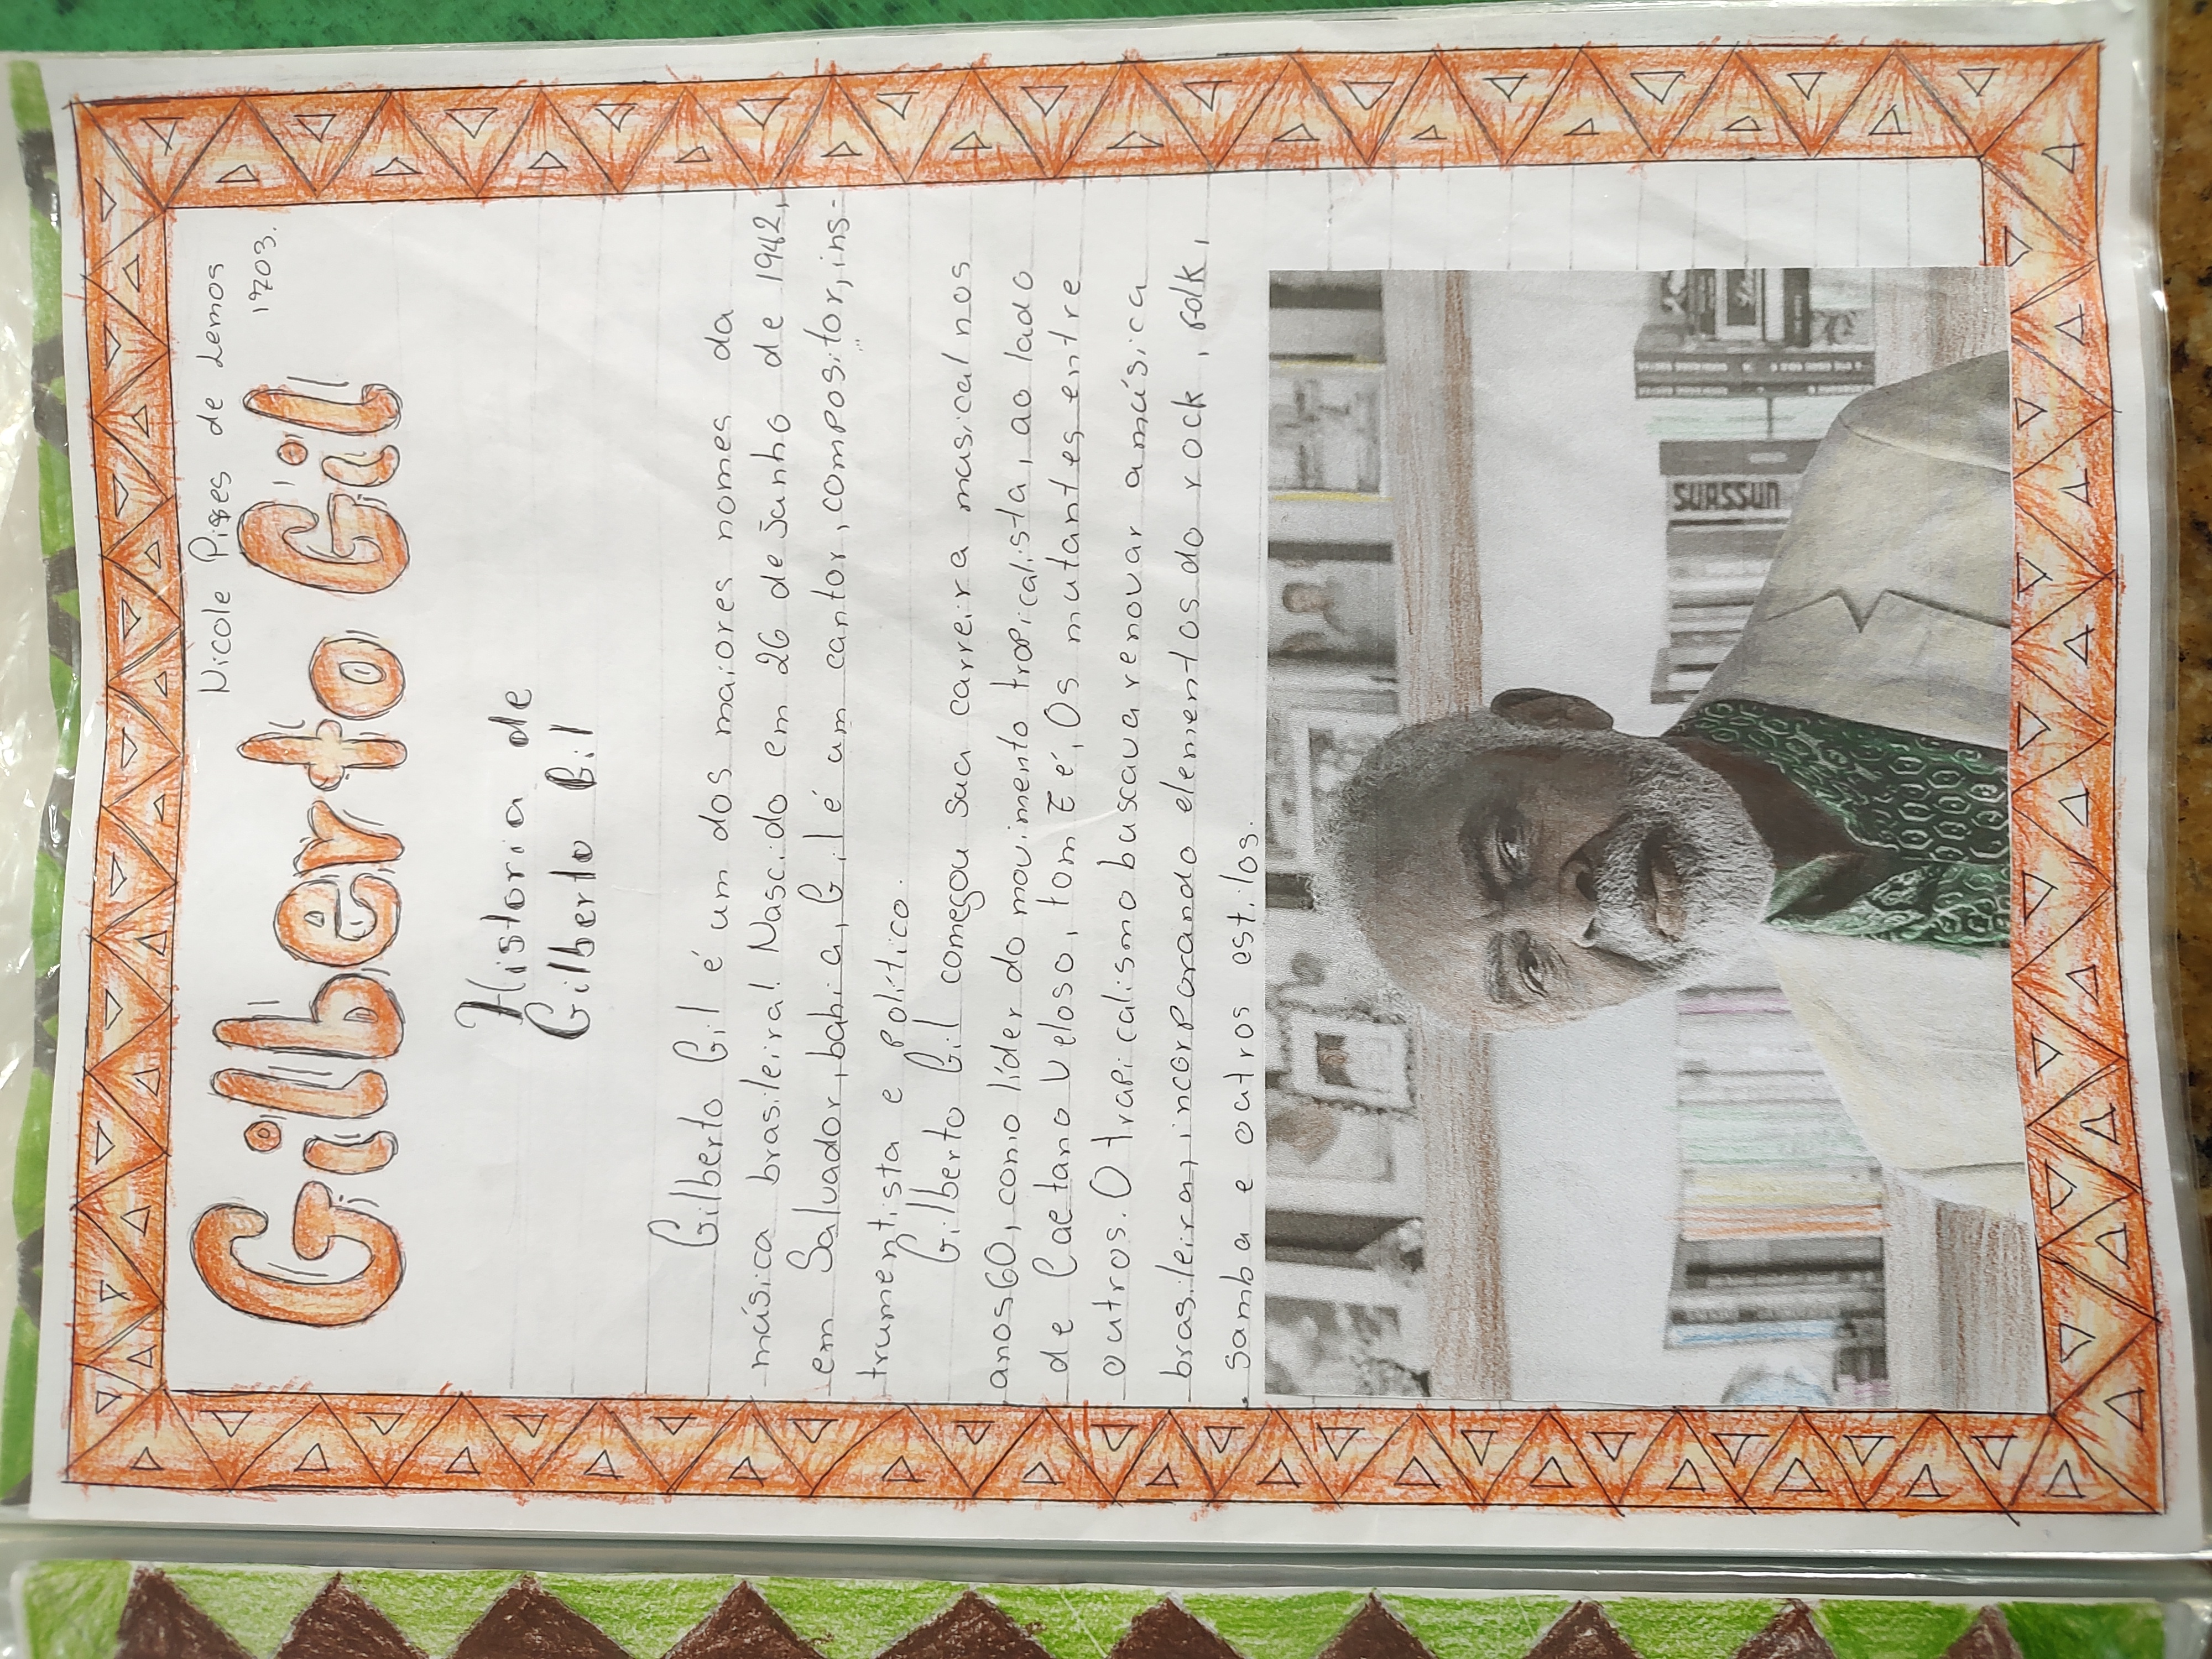 Nicole Pires de Lemos
1703.
Gilberto Gil
Historia de
Gilberto Gil
Gilberto Gil é um dos maiores nomes da
música brasileira! Nascido em 26 de Junho de 1942,
em Salvador, bahia, Gil é um cantor, compositor, ins-
trumentista e político.
Gilberto Gil começou sua carreira musical nos
anos 60, como líder do movimento tropicalista, ao lado
de Caetano Veloso, tom Zé, Os mutantes entre
outros. O tropicalismo buscava renovar a música
brasileira, incorporando elementos do rock, folk,
samba e outros estilos.
SUASSUN